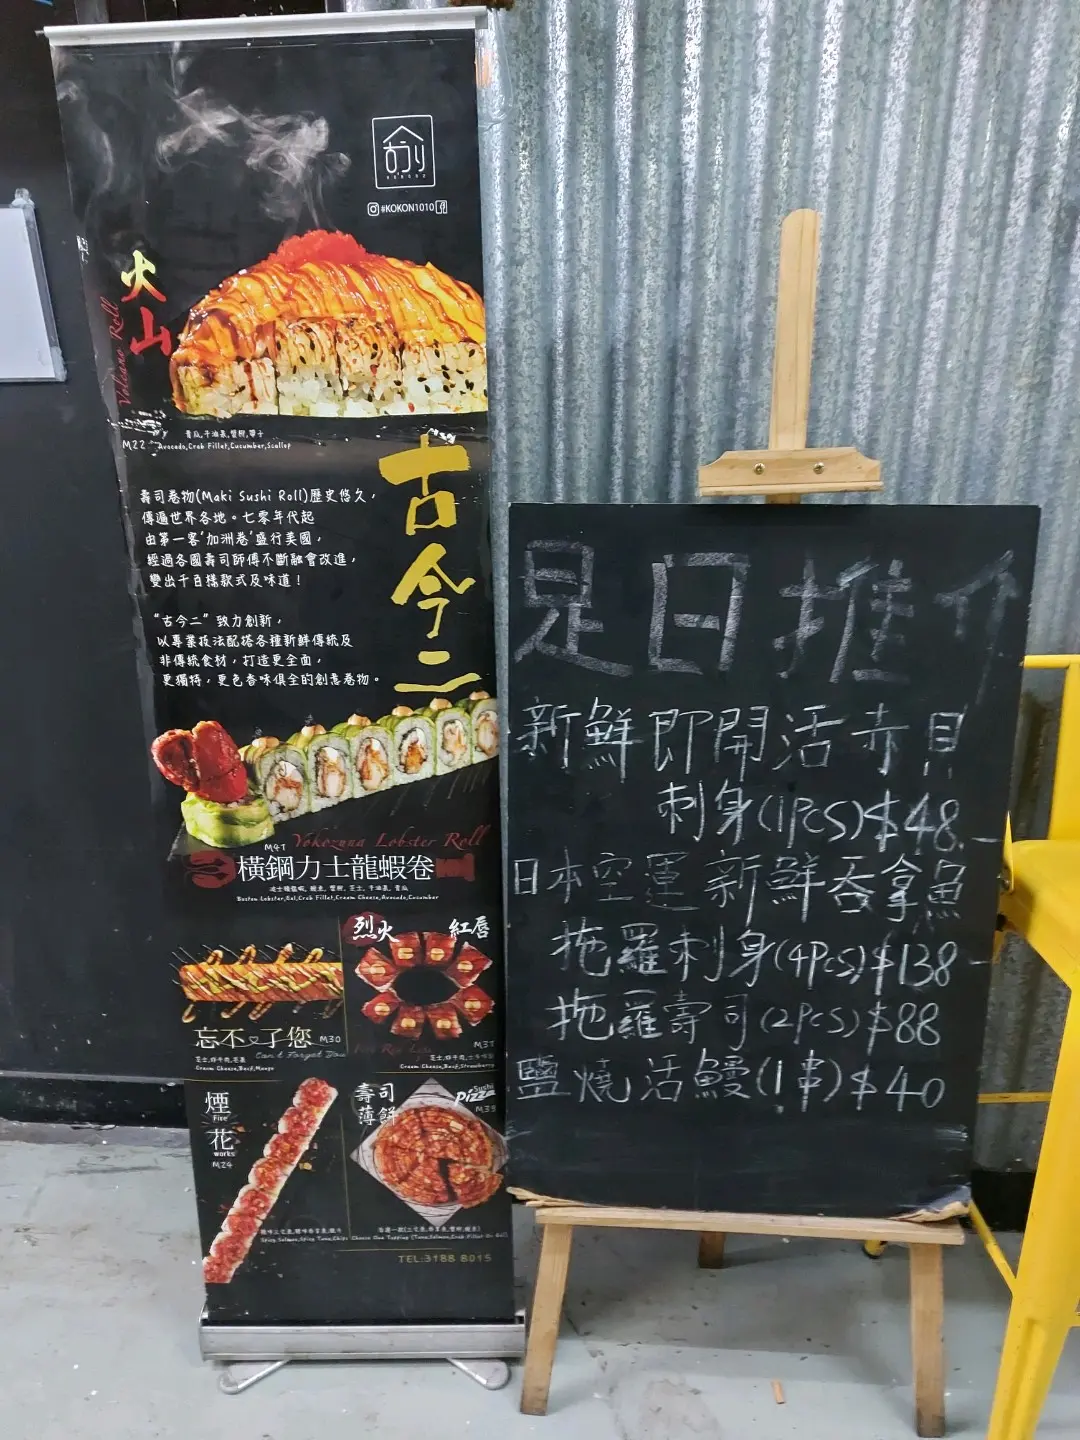 #KOKON1010
火山
Volcano Roll
M22
青瓜,牛油果,蟹柳,帶子
Avocado,Crab Fillet,Cucumber,Scallop
古今二
壽司卷物(Maki Sushi Roll)歷史悠久，
傳遍世界各地。七零年代起
由第一客'加洲卷'盛行美國，
經過各國壽司師傅不斷融會改進，
變出千百樣款式及味道！
"古今二" 致力創新，
以專業技法配搭各種新鮮傳統及
非傳統食材，打造更全面，
更獨特，更色香味俱全的創意卷物。
M41
Yokozuna Lobster Roll
橫鋼力士龍蝦卷
波士頓龍蝦, 鰻魚, 蟹柳, 芝士, 牛油果, 青瓜
Boston Lobster,Eel,Crab Fillet,Cream Cheese,Avocado,Cucumber
忘不了您 M30
Can't Forget You
芝士,炸牛肉,芒果
Cream Cheese,Beef,Mango
烈火
紅唇
M37
Cream Cheese,Beef,Strawberry
煙花
Fire
works
M24
壽司
薄餅
Sushi
Pizza
M39
TEL:3188 8015
是日推介
新鮮即開活赤貝
刺身(1PCS)$48.-
日本空運新鮮吞拿魚
拖羅刺身(4PCS)$138-
拖羅壽司(2PCS)$88
鹽燒活鰻(1串)$40